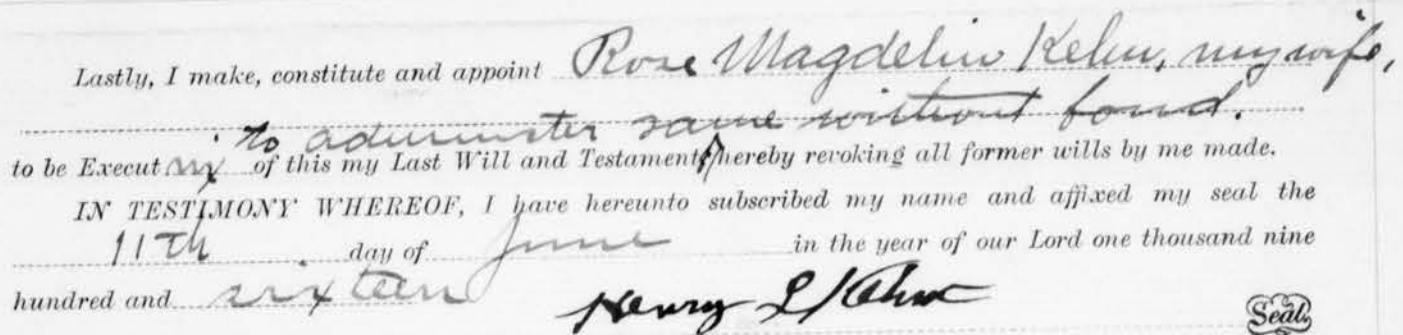 Lastly, I make, constitute and appoint Rose Magdelin Kehn, my wife,
to administer same without bond.
to be Executrix of this my Last Will and Testament, hereby revoking all former wills by me made.
IN TESTIMONY WHEREOF, I have hereunto subscribed my name and affixed my seal the
11th day of June in the year of our Lord one thousand nine
hundred and sixteen Henry L Kehn
Seal